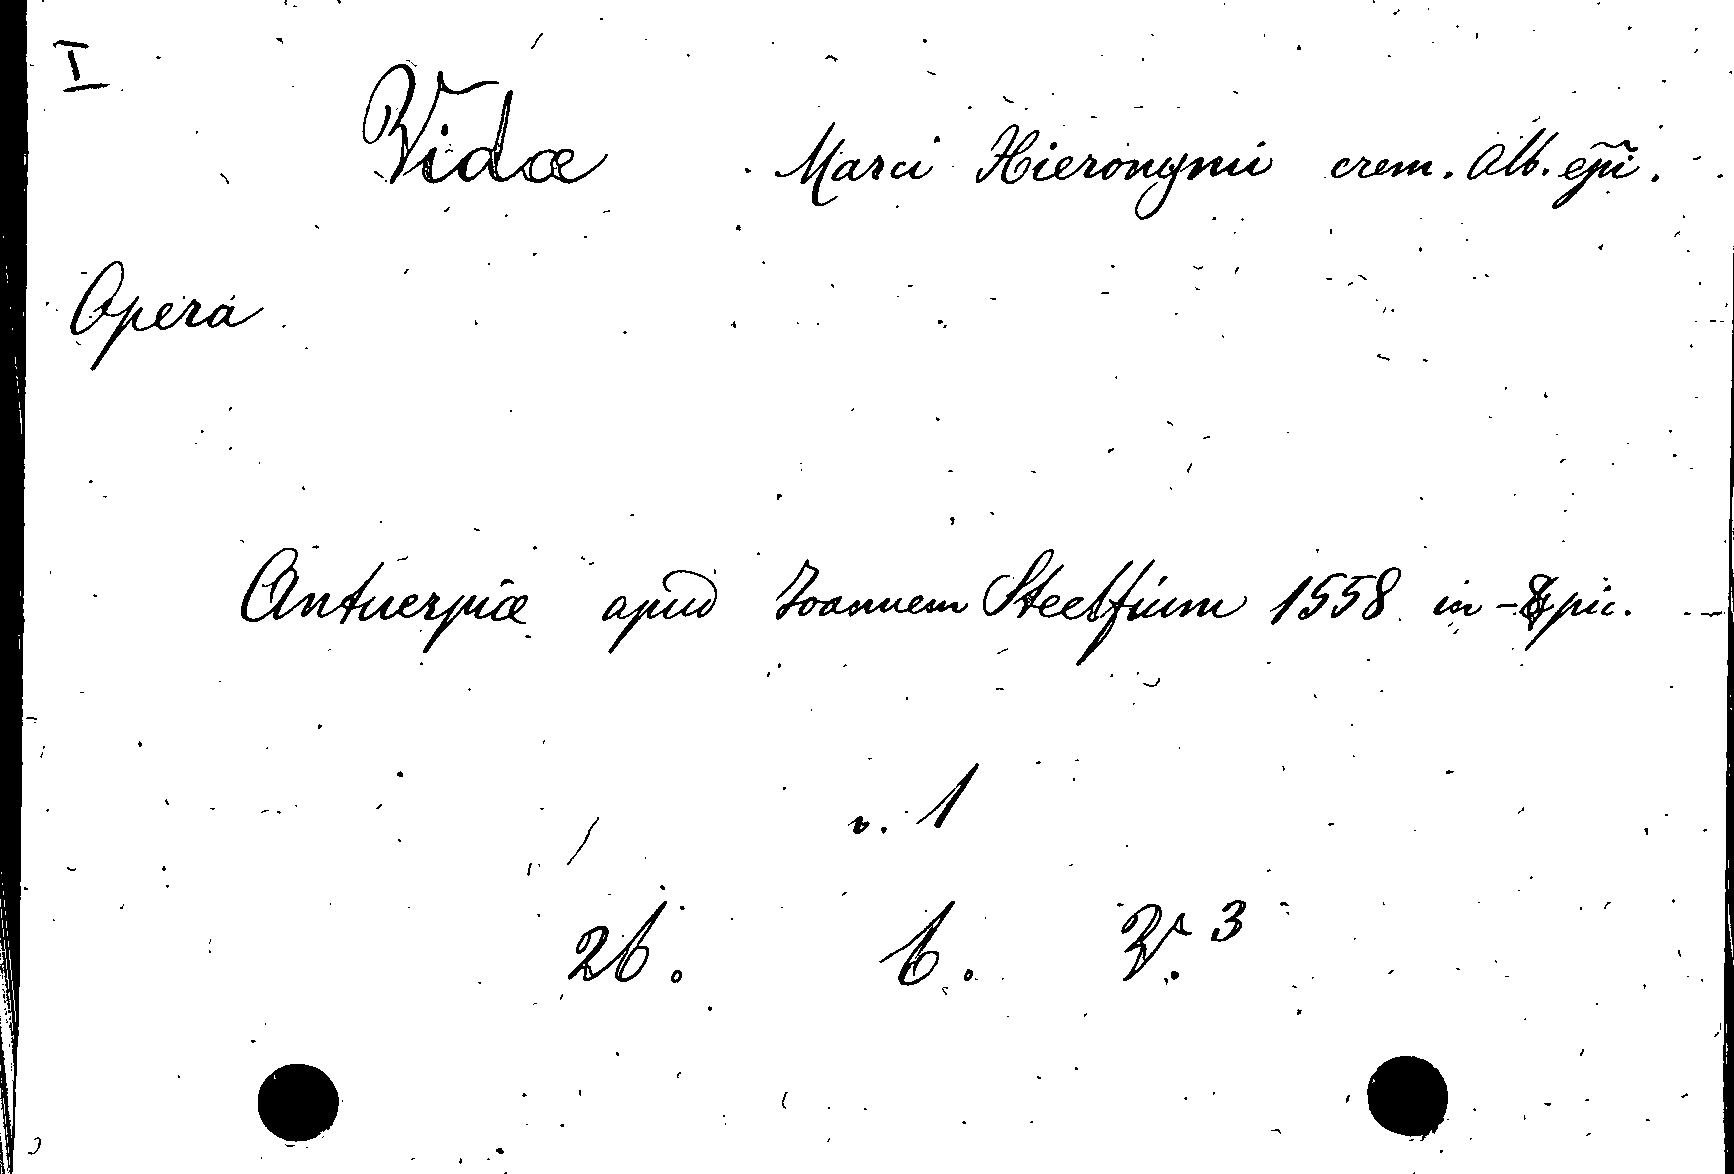 I
Vidæ Marci Hieronymi crem. Alb. epĩ.
Opera
Antuerpiæ apud Joannem Steelfium 1558 in-8 pic.
v. 1
26. 6. V. 3